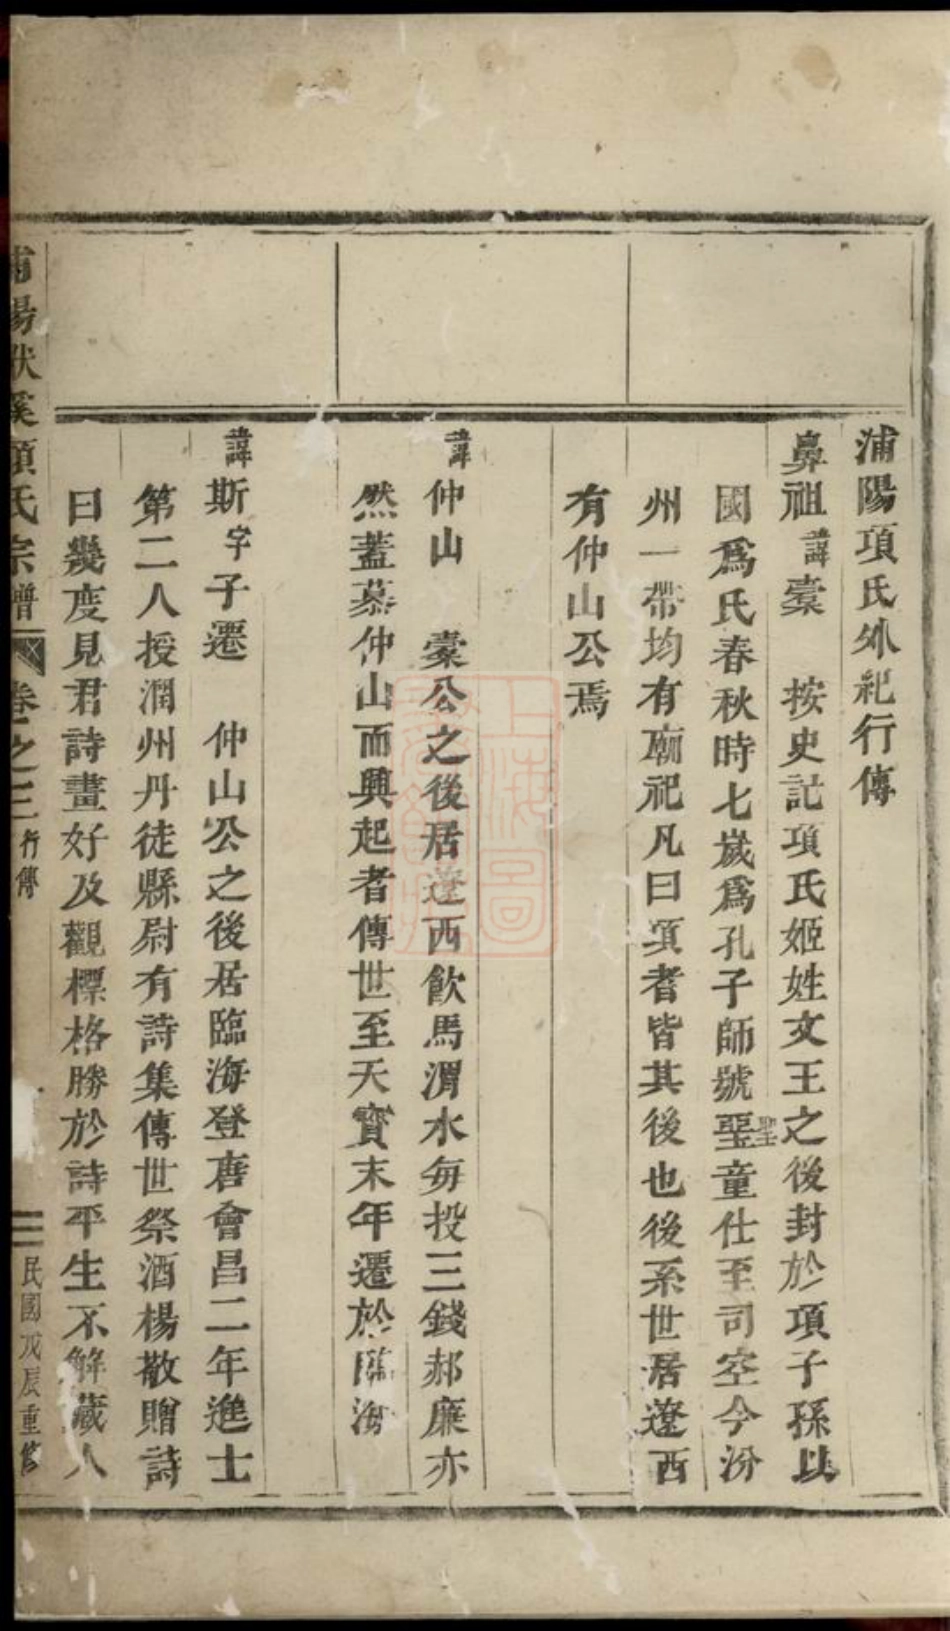 浦陽項氏外祀行傳
鼻祖諱橐　按史記項氏姬姓文王之後封於項子孫以
國爲氏春秋時七歲爲孔子師號聖童仕至司空今汾
聖
州一帶均有廟祀凡曰項者皆其後也後系世居遼西
有仲山公焉
諱仲山　橐公之後居遼西飲馬渭水每投三錢郝廉亦
然蓋慕仲山而興起者傳世至天寳末年遷於臨海
諱斯字子遷　仲山公之後居臨海登唐會昌二年進士
第二人授潤州丹徒縣尉有詩集傳世祭酒楊敬贈詩
曰幾度見君詩畫好及觀標格勝於詩平生不解藏人
浦陽狀溪項氏宗譜　卷之三　行傳　二　民國戊辰重修
上海圖